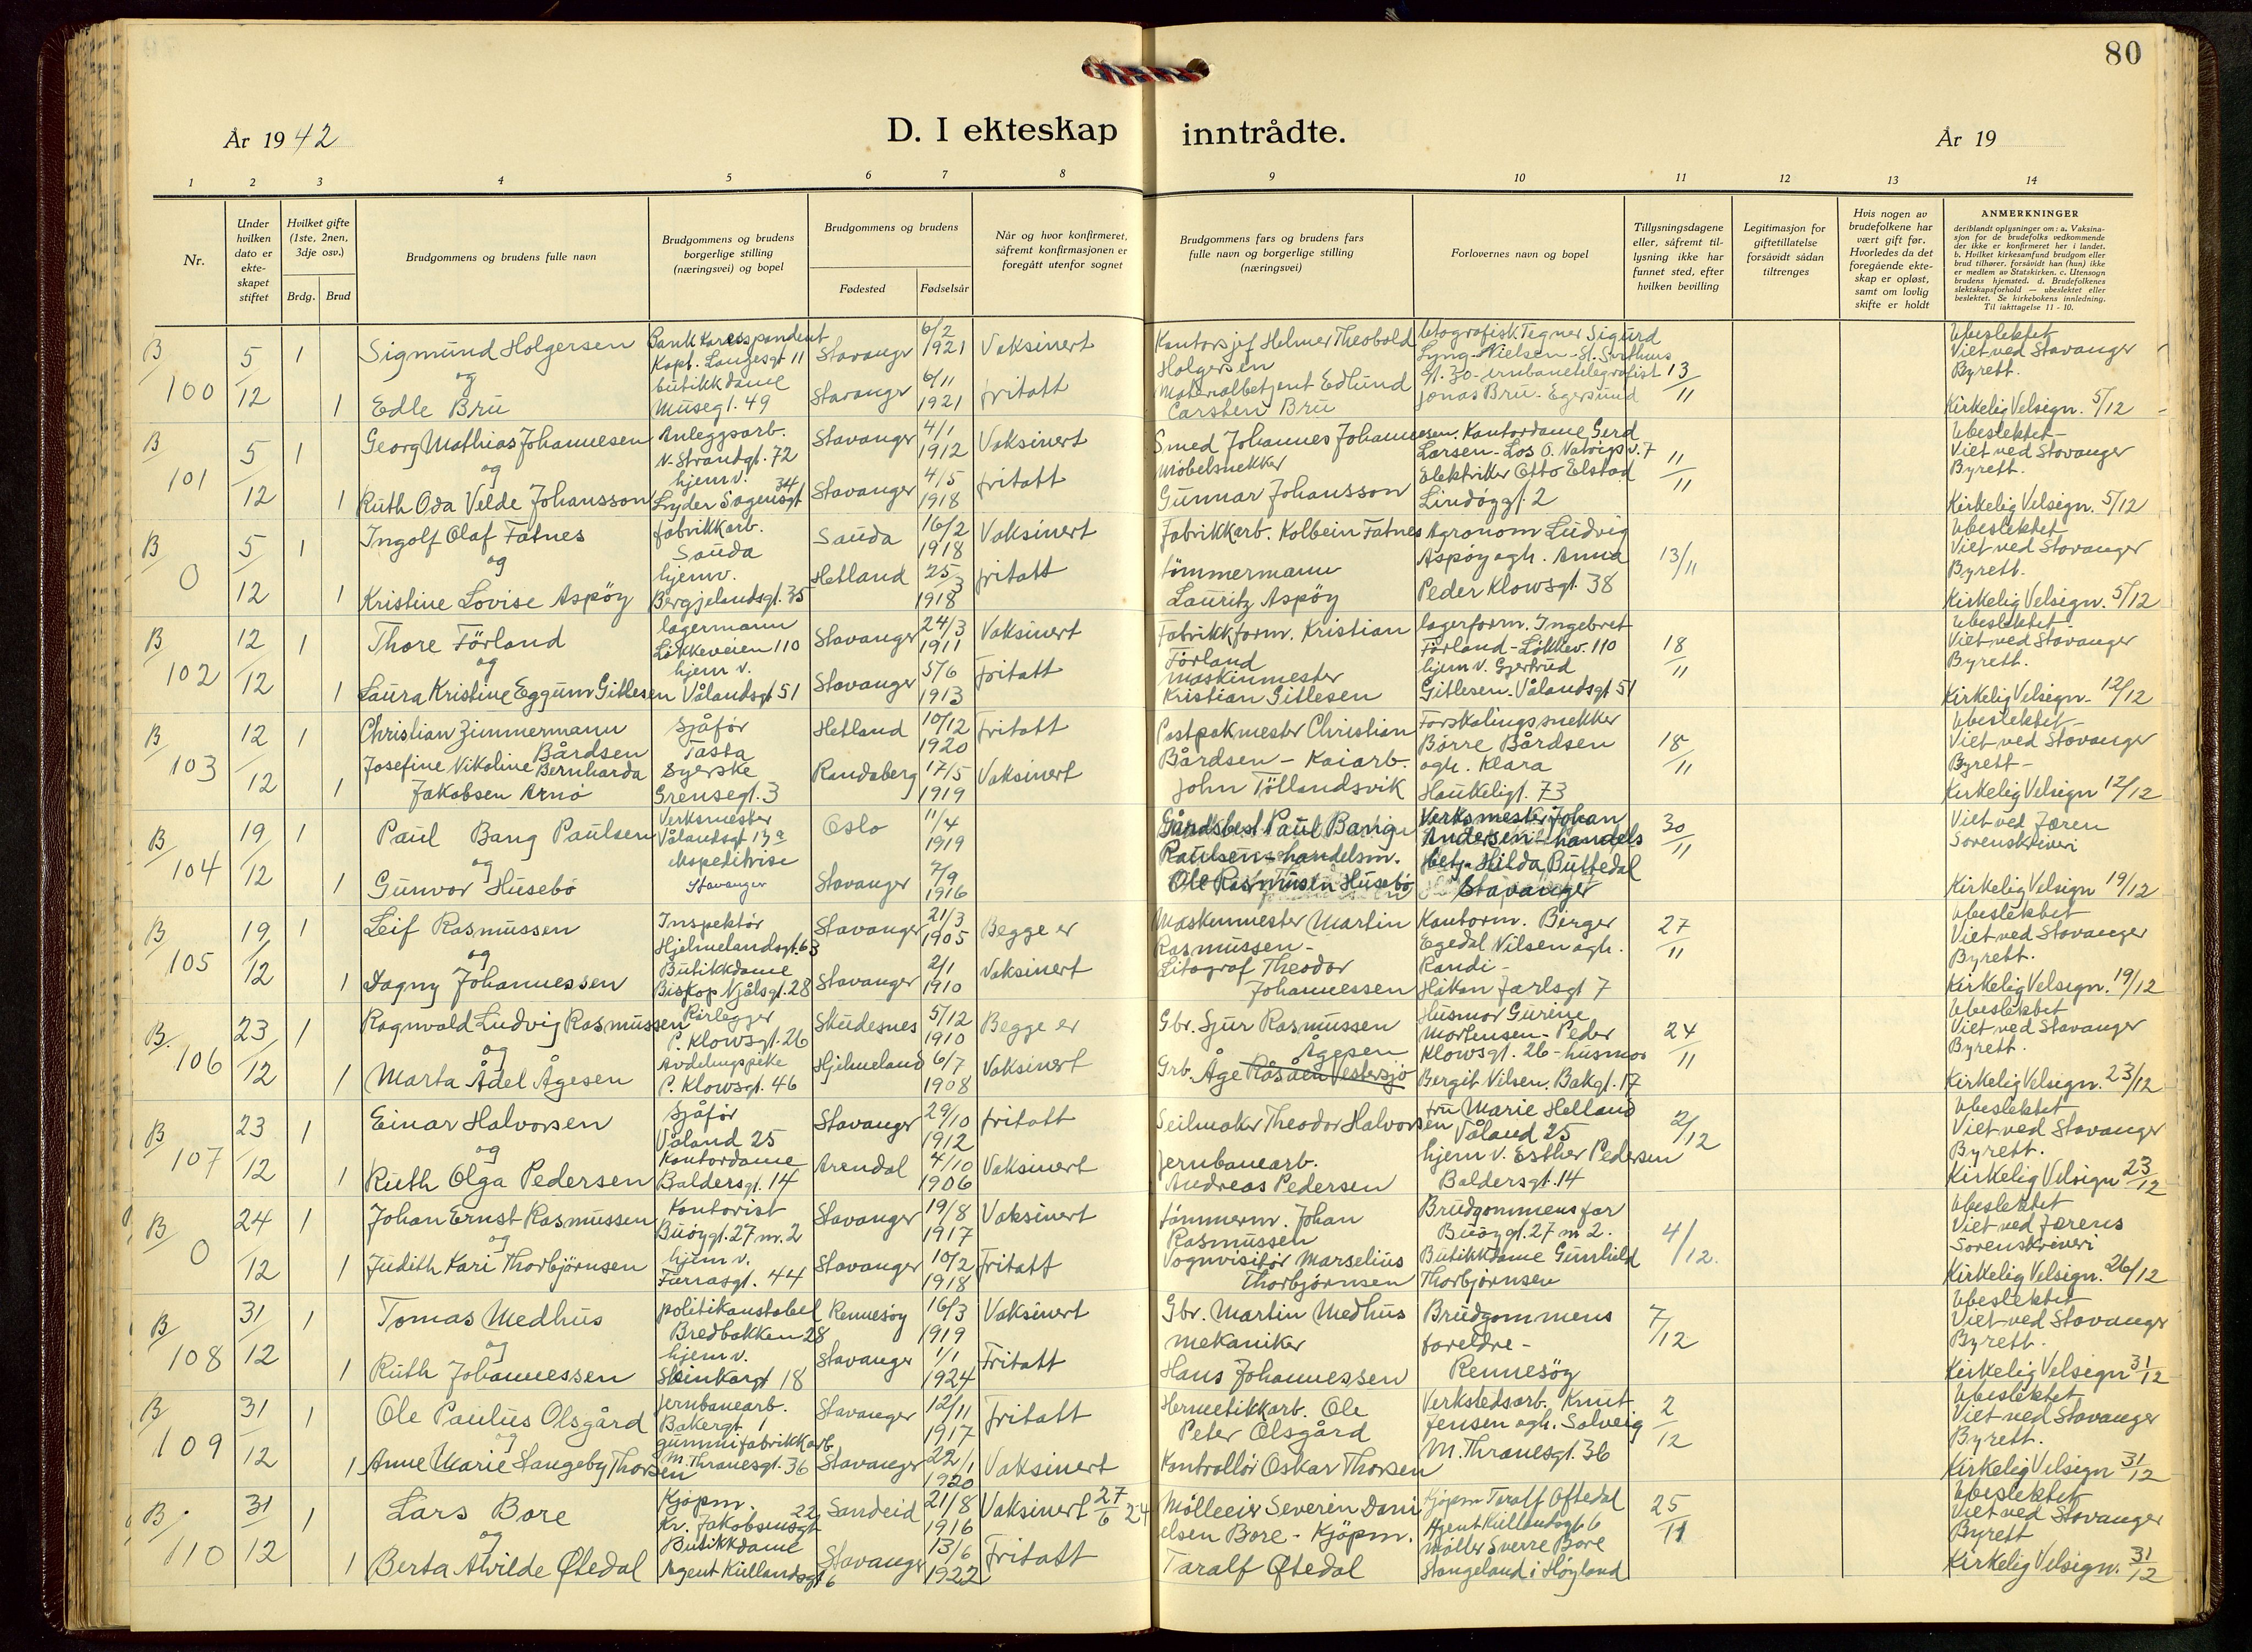 80
År 1942
D. I ekteskap inntrådte.
År 19
1 2 3 4 5 6 7 8 9 10 11 12 13 14
Nr.
Under hvilken dato er ekteskapet stiftet
Hvilket gifte (1ste, 2nen, 3dje osv.)
Brdg. Brud
Brudgommens og brudens fulle navn
Brudgommens og brudens borgerlige stilling (næringsvei) og bopel
Brudgommens og brudens
Fødested
Fødselsår
Når og hvor konfirmeret, såfremt konfirmasjonen er foregått utenfor sognet
Brudgommens fars og brudens fars fulle navn og borgerlige stilling (næringsvei)
Forlovernes navn og bopel
Tillysningsdagene eller, såfremt tillysning ikke har funnet sted, efter hvilken bevilling
Legitimasjon for giftetillatelse forsåvidt sådan tiltrenges
Hvis nogen av brudefolkene har vært gift før. Hvorledes da det foregående ekteskap er opløst, samt om lovlig skifte er holdt
ANMERKNINGER
deriblandt oplysninger om: a. Vaksinasjon for de brudefolks vedkommende der ikke er konfirmeret her i landet. b. Hvilket kirkesamfund brudgom eller brud tilhører, forsåvidt han (hun) ikke er medlem av Statskirken. c. Utensogn brudens hjemsted. d. Brudefolkenes slektskapsforhold — ubeslektet eller beslektet. Se kirkebokens innledning. Til iakttagelse 11 - 10.
B 100
5/12
1
Sigmund Holgersen
og
1 Edle Bru
Bank Korrespondent
Kapt. Langesgt 11
butikkdame
Musegt. 49
Stavanger 6/2 1921 Vaksinert
Stavanger 6/11 1921 fritatt
Kontorsjef Helmer Theobold
Holgersen
Materialbetjent Edlund
Carsten Bru
litografisk Tegner Sigurd
Lyng-Nielsen - St. Svithuns
gt. 30 - jernbanetelegrafist
Jonas Bru - Egersund
13/11
Ubeslektet
Viet ved Stavanger
Byrett.
Kirkelig Velsign. 5/12
B 101
5/12
1
Georg Mathias Johannesen
og
1 Ruth Oda Velde Johansson
Anleggsarb.
N. Strandgt. 72
hjemv.
Lyder Sagensgt 34
Stavanger 4/1 1912 Vaksinert
Stavanger 4/5 1918 fritatt
Smed Johannes Johannesen.
Møbelsnekker
Gunnar Johansson
Kontordame Gerd
Larsen - Los O. Natvigs v. 7
Elektriker Otto Elstad
Lindøygt 2
11/11
Ubeslektet
Viet ved Stavanger
Byrett.
Kirkelig Velsign. 5/12
B 0
5/12
1
Ingolf Olaf Fatnes
og
1 Kristine Lovise Aspöy
fabrikkarb.
Sauda
hjemv.
Bergjelandsgt. 35
Sauda 16/2 1918 Vaksinert
Hetland 25/3 1918 fritatt
Fabrikkarb. Kolbein Fatnes
tömmermann
Lauritz Aspöy
Agronom Ludvig
Aspöy ogh. Anna
Peder Klowsgt. 38
13/11
Ubeslektet
Viet ved Stavanger
Byrett.
Kirkelig Velsign. 5/12
B 102
12/12
1
Thore Förland
og
1 Laura Kristine Eggum Gitlesen
lagermann
Løkkeveien 110
hjem v.
Vålandsgt 51
Stavanger 24/3 1911 Vaksinert
Stavanger 5/6 1913 Fritatt
Fabrikkform. Kristian
Förland
maskinmester
Kristian Gitlesen
lagerform. Ingebret
Förland - Løkkev. 110
hjem v. Gjertrud
Gitlesen. Vålandsgt 51
18/11
Ubeslektet
Viet ved Stavanger
Byrett.
Kirkelig Velsign - 12/12
B 103
12/12
1
Christian Zimmermann
Bårdsen
1 Josefine Nikoline Bernharda
Jakobsen Arnø
Sjåför
Tasta
Syerske
Grensegt. 3
Hetland 10/12 1920 Fritatt
Randaberg 17/5 1919 Vaksinert
Postpakmester Christian
Bårdsen - Kaiarb.
John Töllandsvik
Forskalingssnekker
Børre Bårdsen
ogh. Klara
Haukeligt. 73
18/11
Ubeslektet
Viet ved Stavanger
Byrett -
Kirkelig Velsign 12/12
B 104
19/12
1
Paul Bang Paulsen
og
1 Gunvor Husebö
Verksmester
Vålandsgt 13a
ekspeditrise
Stavanger
Oslo 11/4 1919
Stavanger 7/9 1916
Gårdsbest. Paul Bang
Paulsen - handelsm.
Ole Rasmusen Husebö
Verksmester Johan
Andersen - handels
betj. Hilda Buttedal
Stavanger
30/11
Viet ved Jæren
Sorenskriveri
Kirkelig Velsign 19/12
B 105
19/12
1
Leif Rasmussen
og
1 Dagny Johannessen
Inspektör
Hjelmelandsgt. 63
Butikkdame
Biskop Njålsgt. 28
Stavanger 21/3 1905 Begge er
Stavanger 2/1 1910 Vaksinert
Maskinmester Martin
Rasmussen -
Litograf Theodor
Johannessen
Kontorm. Birger
Egedal Nilsen ogh.
Randi -
Håkon Jarlsgt 7
27/11
Ubeslektet
Viet ved Stavanger
Byrett.
Kirkelig Velsign. 19/12
B. 106
23/12
1
Ragnvald Ludvig Rasmussen
og
1 Marta Ådel Ågesen
Rörlegger
P. Klowsgt. 26
Avdelingspike
P. Klowsgt. 46
Skudesnes 5/12 1910 Begge er
Hjelmeland 6/7 1908 Vaksinert
Gbr. Sjur Rasmussen
Ågesen
Grb. Åge Råsåen Vestersjø
Husmor Gurine
Mortensen - Peder
Klowsgt. 26 - husmor
Bergit Nilsen. Bakgt. 17
24/11
Ubeslektet
Viet ved Stavanger
Byrett.
Kirkelig Velsign. 23/12
B 107
23/12
1
Einar Halvorsen
og
1 Ruth Olga Pedersen
Sjåför
Våland 25
Kontordame
Baldersgt. 14
Stavanger 29/10 1912 fritatt
Arendal 4/10 1906 Vaksinert
Seilmaker Theodor Halvorsen
Jernbanearb.
Andreas Pedersen
fru Marie Helland
Våland 25
hjem v. Esther Pedersen
Baldersgt. 14
2/12
Ubeslektet
Viet ved Stavanger
Byrett.
Kirkelig Velsign 23/12
B 0
24/12
1
Johan Ernst Rasmussen
og
1 Judith Kari Thorbjörnsen
Kontorist
Buöygt. 27 m. 2
hjem v.
Furrasgt. 44
Stavanger 19/8 1917 Vaksinert
Stavanger 10/2 1918 Fritatt
tömmerm. Johan
Rasmussen
Vognvisitör Marselius
Thorbjörnsen
Brudgommens far
Buöygt. 27 m 2.
Butikkdame Gunhild
Thorbjörnsen
4/12.
Ubeslektet
Viet ved Jærens
Sorenskriveri
Kirkelig Velsign. 26/12
B 108
31/12
1
Tomas Medhus
og
1 Ruth Johannessen
politikonstabel
Bredbakken 28
hjem v.
Steinkargt 18
Rennesöy 16/3 1919 Vaksinert
Stavanger 1/1 1924 Fritatt
Gbr. Martin Medhus
mekaniker
Hans Johannessen
Brudgommens
foreldre -
Rennesöy
7/12
Ubeslektet
Viet ved Stavanger
Byrett.
Kirkelig Velsign 31/12
B 109
31/12
1
Ole Paulus Olsgård
og
1 Anne Marie Stangeby Thorsen
Jernbanearb.
Bakergt. 1
gummifabrikkarb.
M. Thranesgt. 36
Stavanger 12/11 1917 Fritatt
Stavanger 22/1 1920 Vaksinert
Hermetikkarb. Ole
Peter Olsgård
Kontrollör Oskar Thorsen
Verkstedsarb. Knut
Jensen ogh. Solveig
M. Thranesgt. 36
2/12
Ubeslektet
Viet ved Stavanger
Byrett.
Kirkelig Velsign 31/12
B. 110
31/12
1
Lars Bore
og
1 Berta Alvilde Øftedal
Kjöpm.
Kr. Jakobsensgt 22
Butikkdame
Agent Kiellandsgt 6
Sandeid 21/8 1916 Vaksinert 27/6 24
Stavanger 13/6 1922 Fritatt
Mölleeier Severin Dani
elsen Bore - Kjöpm.
Taralf Øftedal
Kjöpm Taralf Oftedal
Agent Kiellandsgt 6
Möller Sverre Bore
Stangeland i Høyland
25/11
Ubeslektet
Viet ved Stavanger
Byrett
Kirkelig Velsign. 31/12